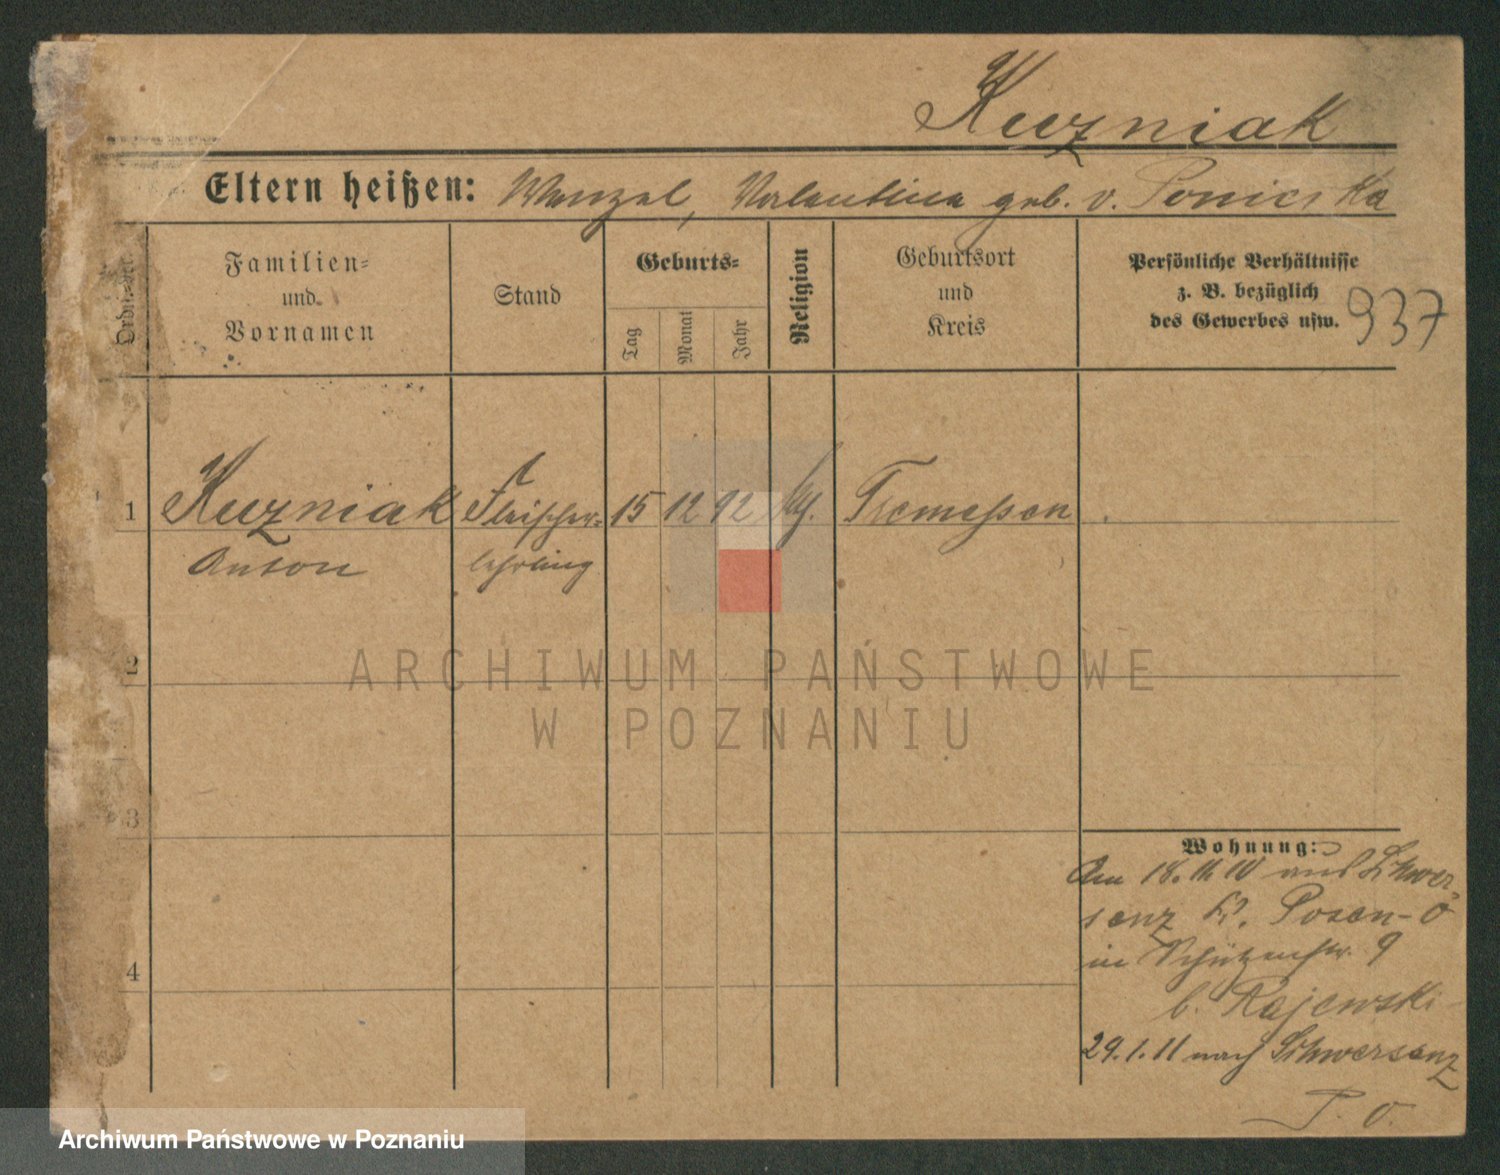 Kuzniak
Eltern heißen: Wenzel, Valentina geb. v. Ponicska
Familien-
und
Vornamen
Stand
Geburts-
Tag
Monat
Jahr
Religion
Geburtsort
und
Kreis
Persönliche Verhältnisse
z. B. bezüglich
des Gewerbes usw.
937
1 Kuzniak Fleischer- 15 12 92 Tremessen
Anton lehrling
2
ARCHIWUM PAŃSTWOWE
W POZNANIU
3
4
Wohnung:
Am 18.11.10 aus Schwer-
senz Kr. Posen-O
in Schützenstr. 9
b. Rajewski
29.1.11 nach Schwersenz
P. O.
Archiwum Państwowe w Poznaniu